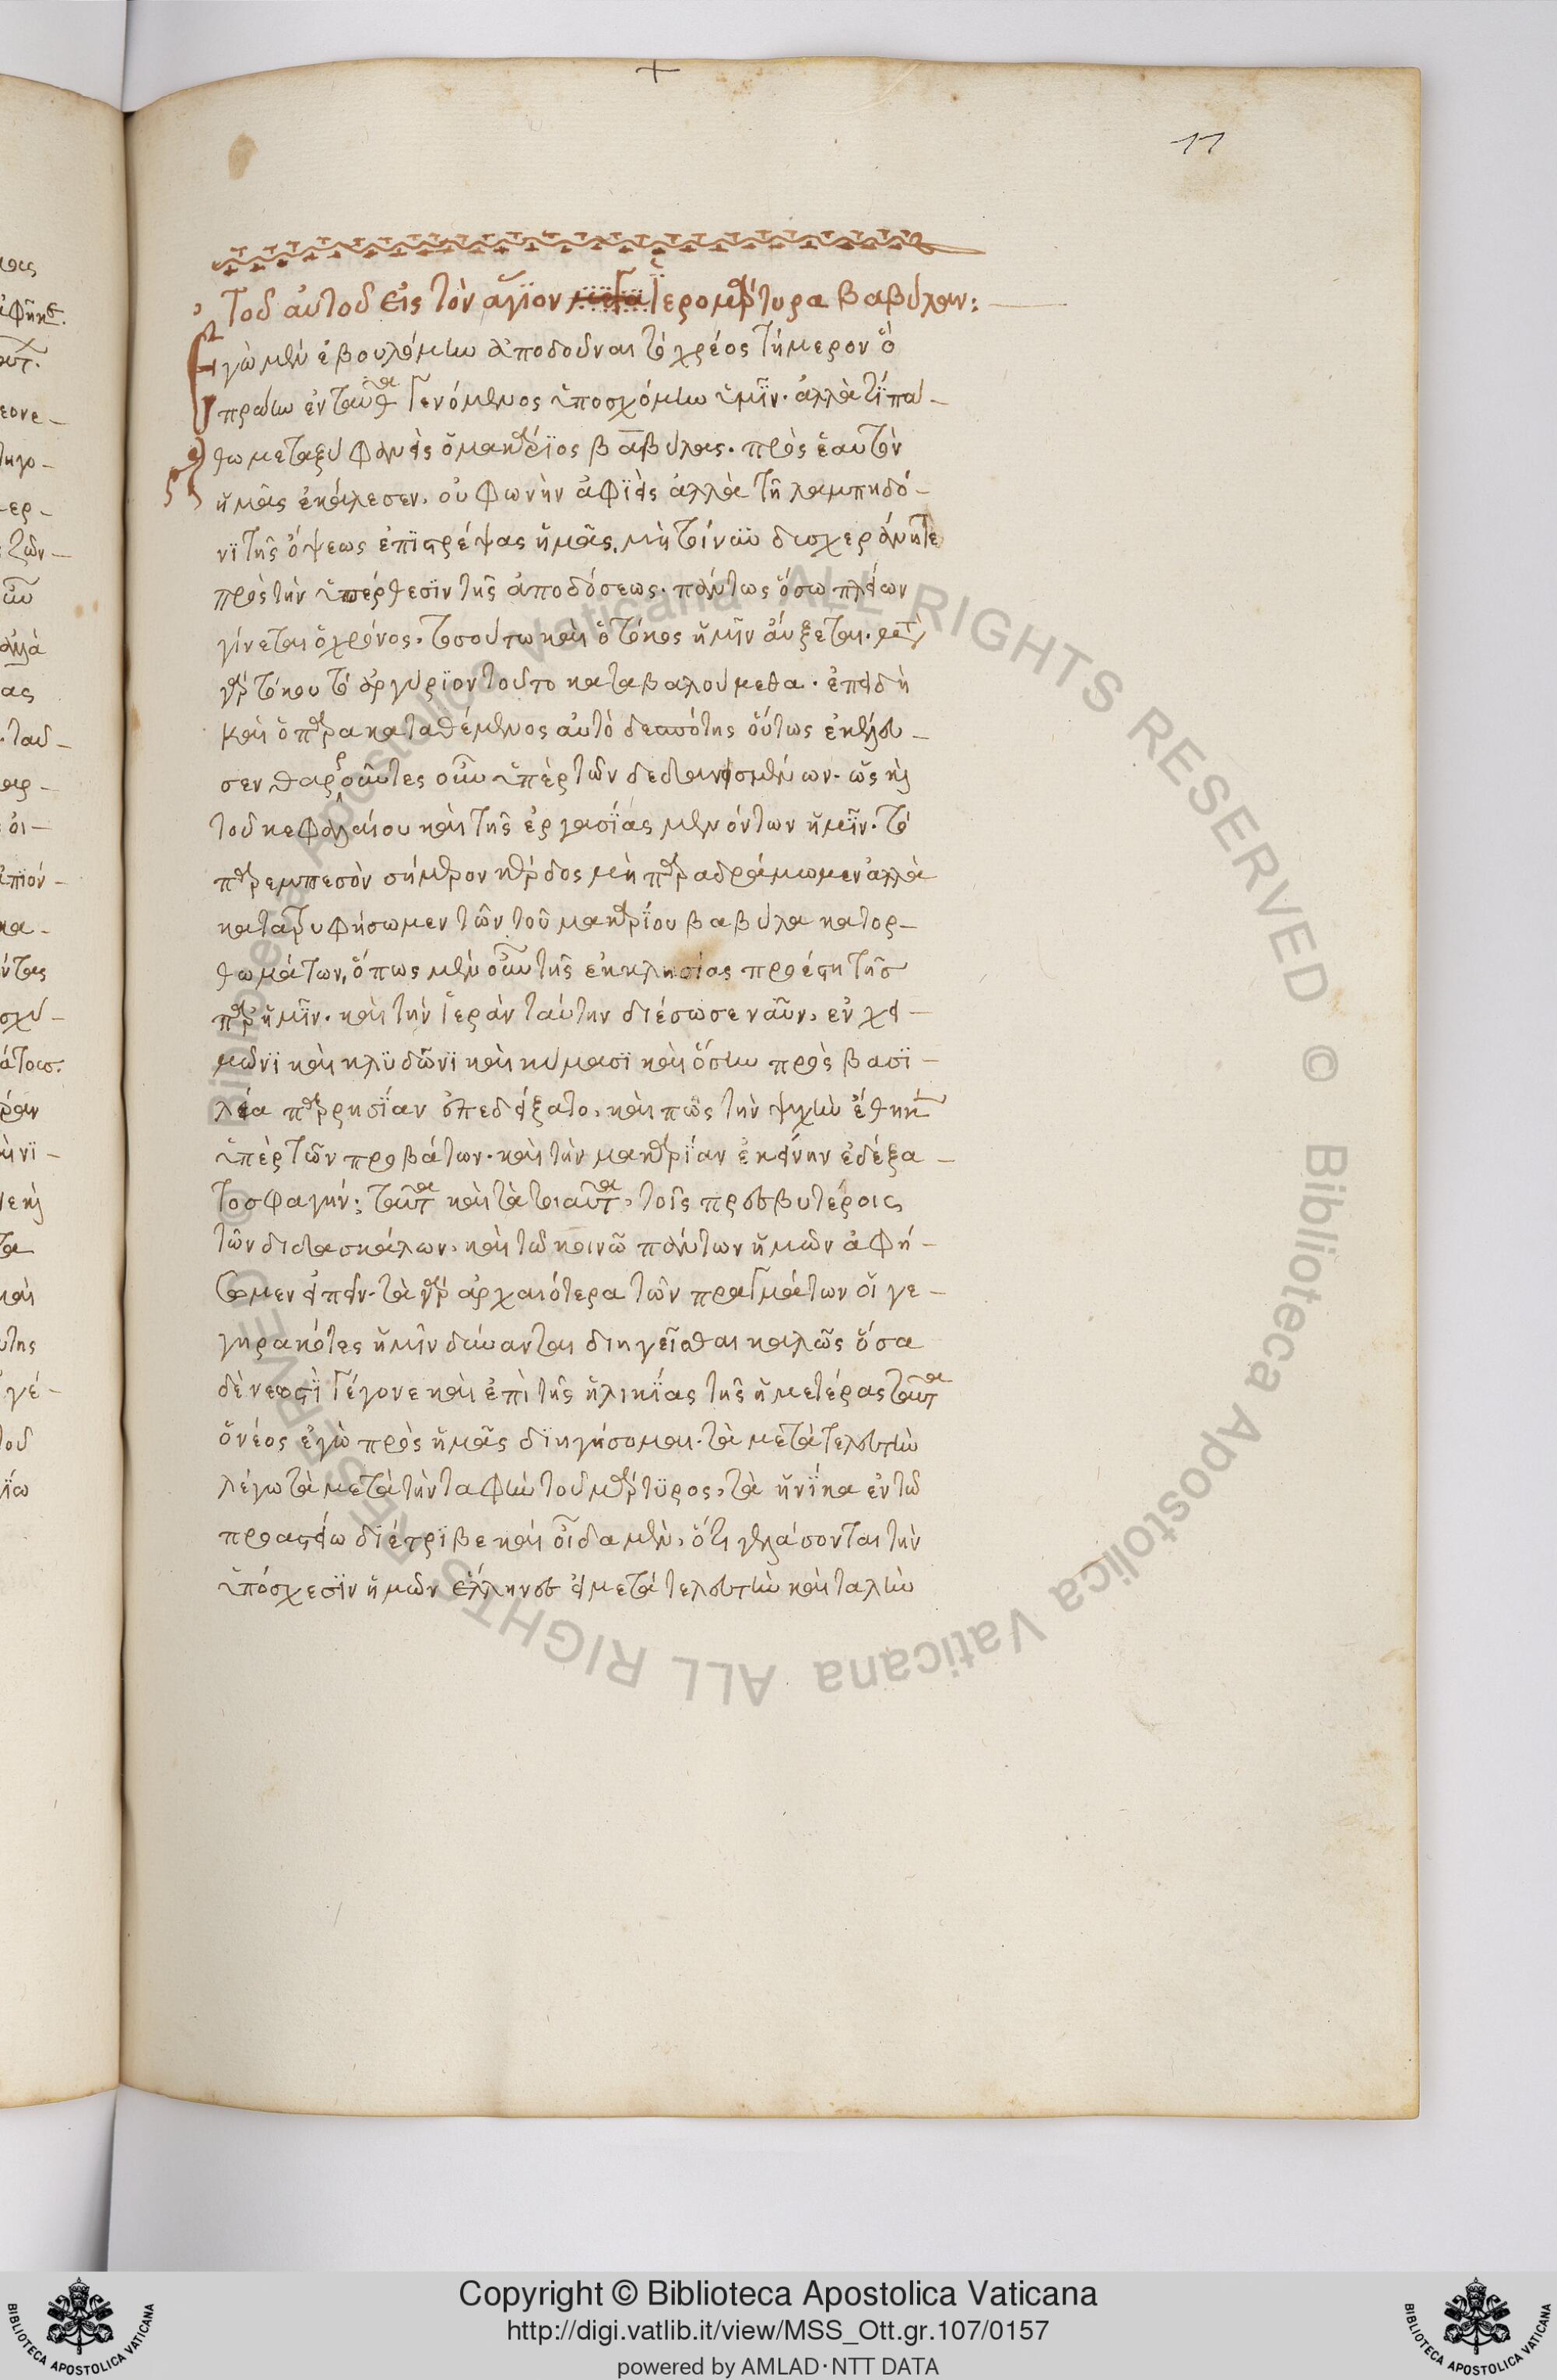 11
Τοῦ αὐτοῦ εἰς τὸν ἅγιον ἱερομάρτυρα βαβύλαν:
Ἐγὼ μὲν ἐβουλόμην ἀποδοῦναι τὸ χρέος τήμερον ὃ
πρώην ἐνταῦθα γενόμενος ὑποσχόμην ὑμῖν. ἀλλὰ τί πά-
θω μεταξὺ φανεὶς ὁ μακάριος βαβύλας. πρὸς ἑαυτὸν
ἡμᾶς ἐκάλεσεν. οὐ φωνὴν ἀφϊεὶς ἀλλὰ τῇ λαμπηδό-
νϊ τῆς ὄψεως ἐπϊστρέψας ἡμᾶς. μὴ τοίνυν δυσχεράνητε
πρὸς τὴν ὑπέρθεσϊν τῆς ἀποδόσεως. πάντως ὅσω πλείων
γίνεται ὁ χρόνος. τοσούτω καὶ ὁ τόκος ἡμῖν αὔξεται. μετὰ
γὰρ τόκου τὸ ἀργύρϊον τοῦτο καταβαλούμεθα. ἐπειδὴ
καὶ ὁ παρακαταθέμενος αὐτὸ δεσπότης οὕτως ἐκέλευ-
σεν θαρροῦντες οὖν ὑπὲρ τῶν δεδανεισμένων. ὡς καὶ
τοῦ κεφαλαίου καὶ τῆς ἐργασΐας μενόντων ἡμῖν. τὸ
παρεμπεσὸν σήμερον κέρδος μὴ παραδράμωμεν ἀλλὰ
κατατρυφήσωμεν τῶν τοῦ μακαρΐου βαβύλα κατορ-
θωμάτων. ὅπως μὲν οὖν τῆς ἐκκλησίας προέστη τῆς
παρ' ἡμῖν. καὶ τὴν ἱερὰν ταύτην διέσωσε ναῦν. ἐν χει-
μῶνϊ καὶ κλϋδῶνϊ καὶ κύμασϊ καὶ ὅσην πρὸς βασϊ-
λέα παρρησΐαν ἐπεδείξατο. καὶ πῶς τὴν ψυχὴν ἔθηκεν
ὑπὲρ τῶν προβάτων. καὶ τὴν μακαρΐαν ἐκείνην ἐδέξα-
το σφαγήν: ταῦτα καὶ τὰ τοιαῦτα. τοῖς πρεσβυτέροις
τῶν διδασκάλων. καὶ τῶ κοινῶ πάντων ἡμῶν ἀφή-
σομεν εἰπεῖν. τὰ γὰρ ἀρχαιότερα τῶν πραγμάτων οἱ γε-
γηρακότες ἡμῖν δύνανται διηγεῖσθαι καλῶς ὅσα
δὲ νεωστῒ γέγονε καὶ ἐπὶ τῆς ἡλικΐας τῆς ἡμετέρας ταῦτα
ὁ νέος ἐγὼ πρὸς ἡμᾶς δϊηγήσομαι. τὰ μετὰ τελευτὴν
λέγω τὰ μετὰ τὴν ταφὴν τοῦ μάρτϋρος. τὰ ἡνΐκα ἐν τῶ
προαστείω διέτρϊβε καὶ οἶδα μὲν. ὅτι γελάσονται τὴν
ὑπόσχεσϊν ἡμῶν ἕλληνες εἰ μετὰ τελευτὴν καὶ ταφὴν
Copyright © Biblioteca Apostolica Vaticana
http://digi.vatlib.it/view/MSS_Ott.gr.107/0157
powered by AMLAD·NTT DATA
BIBLIOTECA APOSTOLICA VATICANA
BIBLIOTECA APOSTOLICA VATICANA
© Biblioteca Apostolica Vaticana ALL RIGHTS RESERVED © Biblioteca Apostolica Vaticana ALL RIGHTS RESERVED